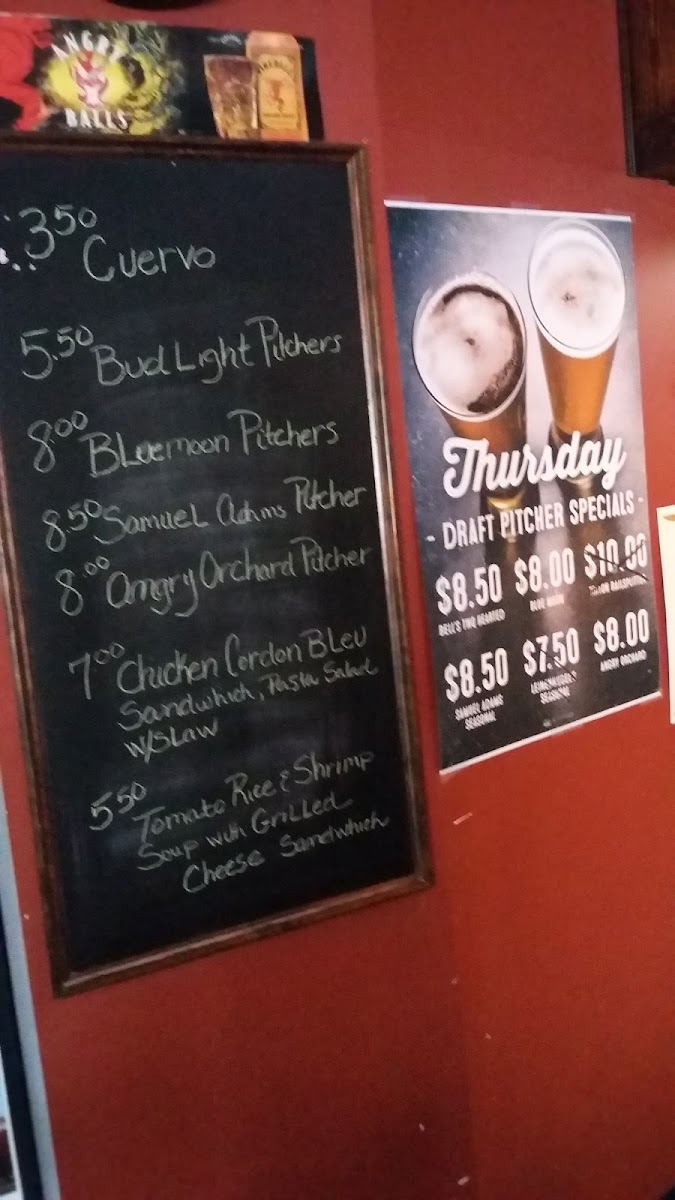 ANGRY
BALLS
3.50 Cuervo
5.50 Bud Light Pitchers
8.00 Bluemoon Pitchers
8.50 Samuel Adams Pitcher
8.00 Angry Orchard Pitcher
7.00 Chicken Cordon Bleu
Sandwhich, Pasta Salad
w/Slaw
5.50 Tomato Rice & Shrimp
Soup with Grilled
Cheese Sandwhich
Thursday
- DRAFT PITCHER SPECIALS -
$8.50 $8.00 $10.00
BELL'S TWO HEARTED BLUE MOON
$8.50 $7.50 $8.00
SAMUEL ADAMS
SEASONAL
LEINENKUGEL'S
SEASONAL
ANGRY ORCHARD